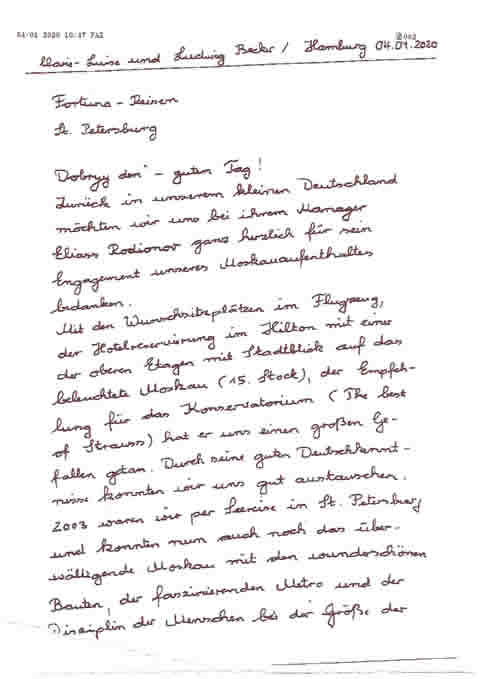 04/01 2020 10:47 FAX
002
Marie-Luise und Ludwig Becker / Hamburg 04.01.2020
Fortuna - Reisen
St. Petersburg
Dobryy den' - guten Tag!
Zurück in unserem kleinen Deutschland
möchten wir uns bei ihrem Manager
Eliass Rodionov ganz herzlich für sein
Engagement unseres Moskauaufenthaltes
bedanken.
Mit den Wunschsitzplätzen im Flugzeug,
der Hotelreservierung im Hilton mit einer
der oberen Etagen mit Stadtblick auf das
beleuchtete Moskau (15. Stock), der Empfeh-
lung für das Konservatorium (The best
of Strauss) hat er uns einen großen Ge-
fallen getan. Durch seine guten Deutschkennt-
nisse konnten wir uns gut austauschen.
2003 waren wir per Seereise in St. Petersburg
und konnten nun auch noch das über-
wältigende Moskau mit den wunderschönen
Bauten, der faszinierenden Metro und der
Disziplin der Menschen bei der Größe der